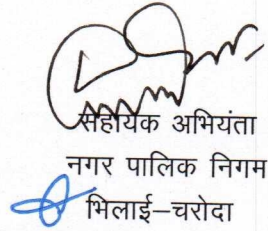 सहायक अभियंता
नगर पालिक निगम
भिलाई–चरोदा